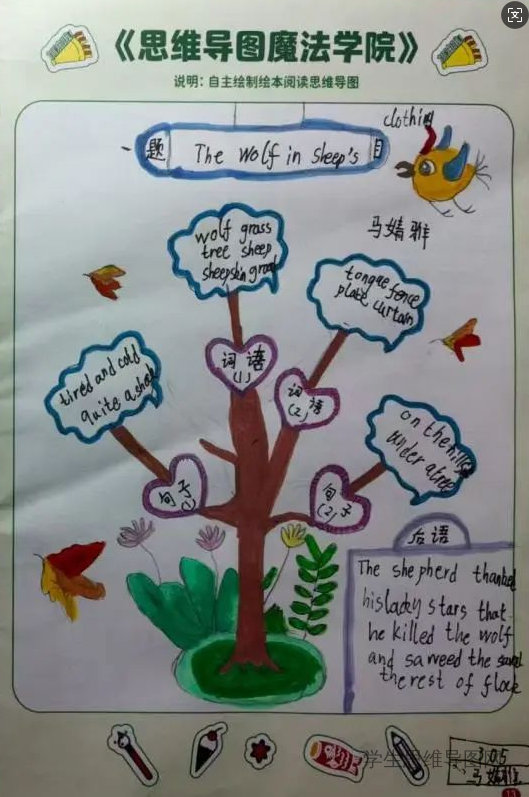 《思维导图魔法学院》
说明：自主绘制绘本阅读思维导图
clothing
题 The wolf in sheep's 目
马婧
wolf grass
tree sheep
sheepskin
tongue fence
plate curtain
词语
(1)
词语
(2)
tired and cold
quite a shock
on the hills
under a tree
句子
(1)
句子
(2)
后语
The shepherd thanked
his lacky stars that
he killed the wolf
and sarveed the
the rest of flock
学生思维导图
305
马婧